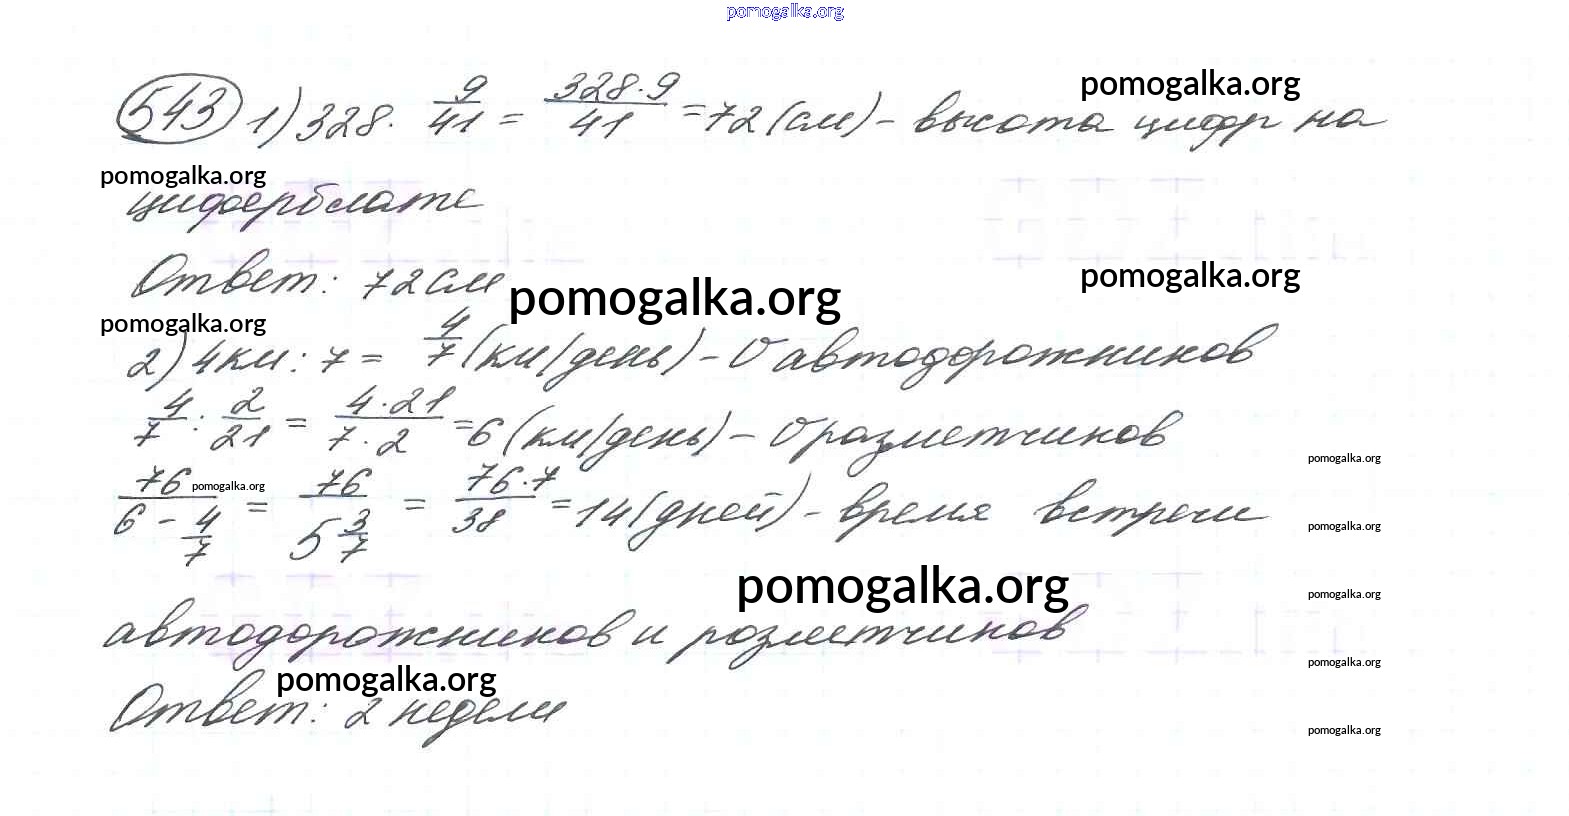 pomogalka.org
543 1) 328 · 9/41 = 328·9/41 = 72 (см) – высота цифр на
pomogalka.org
pomogalka.org
циферблате
Ответ: 72 см
pomogalka.org
pomogalka.org
pomogalka.org
2) 4 км : 7 = 4/7 (км/день) – V автодорожников
4/7 : 2/21 = 4·21/7·2 = 6 (км/день) – V разметчиков
pomogalka.org
76/(6 – 4/7) = 76/(5 3/7) = 76·7/38 = 14 (дней) – время встречи
pomogalka.org
pomogalka.org
pomogalka.org
pomogalka.org
автодорожников и розметчиков
pomogalka.org
pomogalka.org
Ответ: 2 недели
pomogalka.org